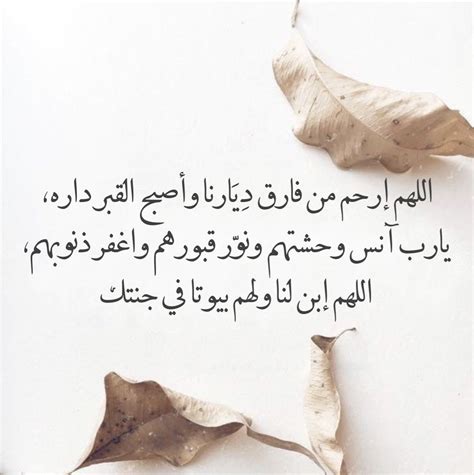 اللهم إرحم من فارق دِيَارنا وأصبح القبر داره،
يارب آنس وحشتهم ونوّر قبورهم واغفر ذنوبهم،
اللهم إبن لنا ولهم بيوتا في جنتك